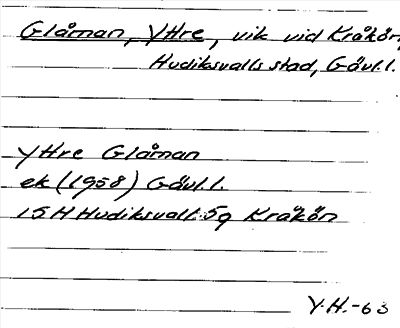 Glåman, Yttre, vik vid Kråkön,
Hudiksvalls stad, Gävl.l.
Yttre Glåman
ek (1958) Gävl.l.
15 H Hudiksvall 5g Kråkön
Y.H.-63